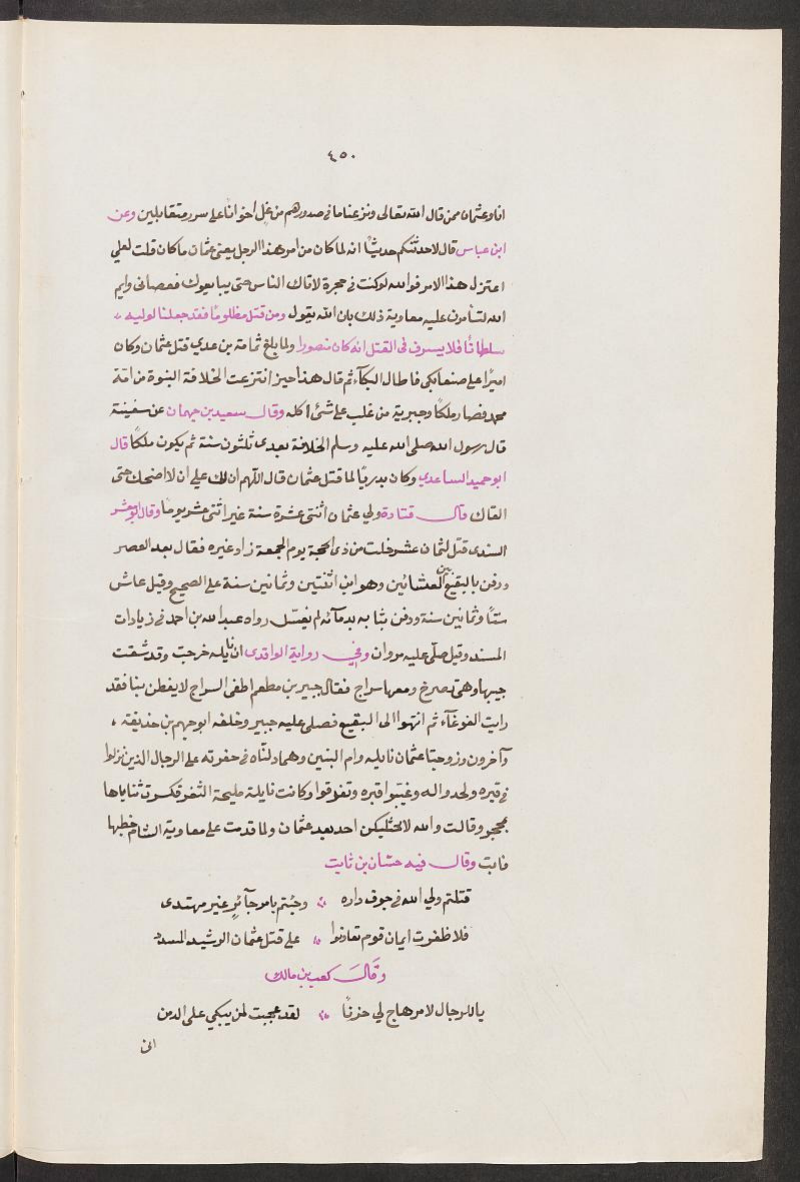 ٤٥٠
انا وعثمان ممن قال الله تعالى ونزعنا ما في صدورهم من غل اخوانا على سرر متقابلين وعن
ابن عباس قال لاحدثنكم حديثا انه لما كان من امر هذا الرجل يعني عثمان ما كان قلت لعلي
اعتزل هذا الامر فوالله لو كنت في حجرة لاتاك الناس حتى يبايعوك فعصاني وايم
الله لتيأمرن عليه معاوية ذلك بان الله يقول ومن قتل مظلوما فقد جعلنا لوليه
سلطانا فلا يسرف في القتل انه كان منصورا ولما بلغ ثمامة بن عدي قتل عثمان وكان
اميرا على صنعا بكى فاطال البكآء ثم قال هذا حين انتزعت الخلافة النبوة من امّة
محمد فصار ملكا وجبرية من غلب على شئ اكله وقال سعيد بن جهمان عن سفينة
قال رسول الله صلى الله عليه وسلم الخلافة بعدى ثلثون سنة ثم يكون ملكا قال
ابو حميد الساعدي وكان بدريا لما قتل عثمان قال اللهم ان لك علي ان لا اضحك حتى
القاك قال قتادة ولي عثمان اثنتى عشرة سنة غير اثنى عشر يوما وقال ابو معشر
السندى قتل لثمان عشر خلت من ذى الحجة يوم الجمعة زاد غيره فقال بعد العصر
ودفن بالبقيع بين العشائين وهو ابن اثنتين وثمانين سنة على الصحيح وقيل عاش
ستا وثمانين سنة ودفن بثيابه بدمآئه لم يغسل رواه عبد الله بن احمد في زيادات
المسند وقيل صلّى عليه مروان وفي رواية الواقدى ان نايله خرجت وقد شقت
جيبها وهي تصرخ ومعها سراج فقال جبير بن مطعم اطفى السراج لا يفطن بنا فقد
رايت الغوغآء ثم انتهوا الى البقيع فصلى عليه جبير وخلفه ابو جهم بن حذيفة ،
وآخرون وزوجتا عثمان نايله وام البنين وهما دلتاه في حفرته على الرجال الذين نزلوا
في قبره ولحدوا له وغيبوا قبره وتفرقوا وكانت نايلة مليحة الثغر فكسرت ثناياها
بحجر وقالت والله لا يجتليكن احد بعد عثمان ولما قدمت على معاوية الشام خطبها
فابت وقال فيه حسّان بن ثابت
قتلتم ولي الله في جوف داره ∴ وجئتم بامر جآئرٍ غير مهتدى
فلا ظفرت ايمان قوم تعاونوا ∴ على قتل عثمان الرشيد المسدد
وقَالَ كعب بن مالك
ياللرجال لامر هاج لي حزنا ∴ لقد عجبت لمن يبكي على الدمن
انى